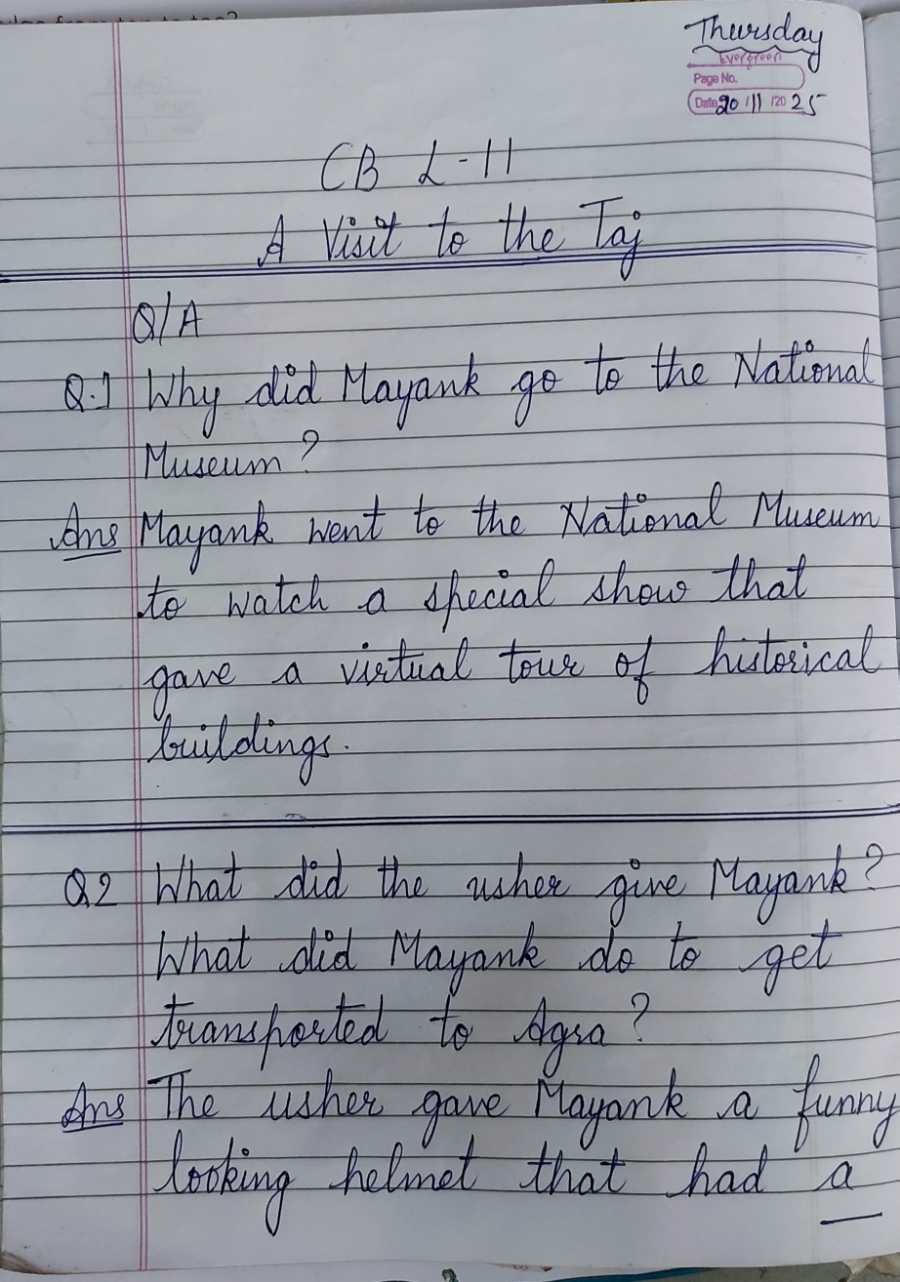 Thursday
Evergreen
Page No.
Date 20/11/2025
CB L-11
A Visit to the Taj
Q/A
Q.1 Why did Mayank go to the National
Museum?
Ans Mayank went to the National Museum
to watch a special show that
gave a virtual tour of historical
buildings.
Q2 What did the usher give Mayank?
What did Mayank do to get
transported to Agra?
Ans The usher gave Mayank a funny
looking helmet that had a